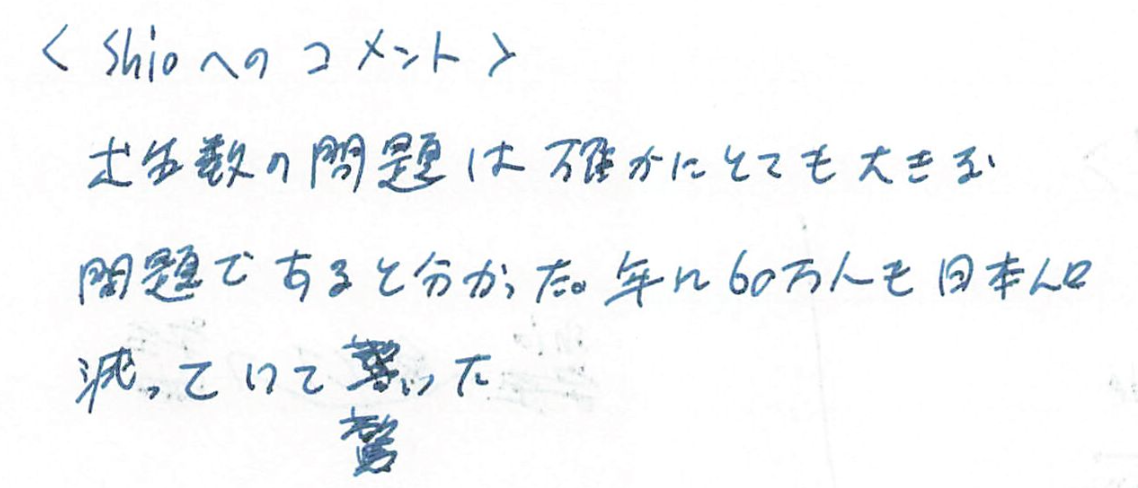 < Shioへの コメント >
出生数の問題は 確かにとても大きな
問題であると分かった。年に60万人も日本人口
減っていて驚いた
驚